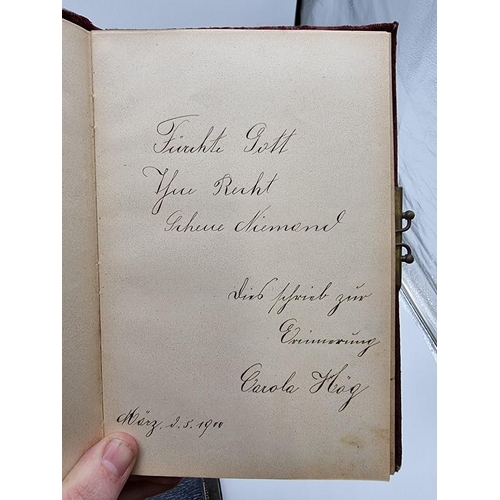 Fürchte Gott
Thue Recht
Scheue Niemand
Dies schrieb zur
Erinnerung
Carola Hög
März, d. 5. 1900